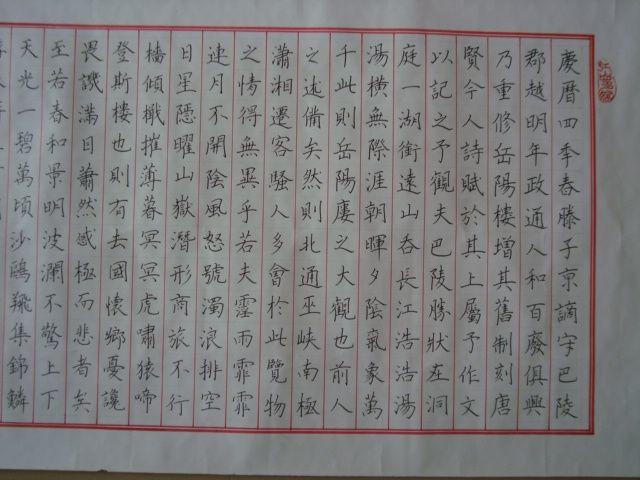 慶曆四秊春滕子京謫守巴陵
郡越明年政通人和百廢俱興
乃重修岳陽樓增其舊制刻唐
賢今人詩賦於其上屬予作文
以記之予觀夫巴陵勝狀在洞
庭一湖銜遠山吞長江浩浩湯
湯橫無際涯朝暉夕陰氣象萬
千此則岳陽廔之大觀也前人
之述備矣然則北通巫峽南極
瀟湘遷客騷人多會於此覽物
之情得無異乎若夫霪雨霏霏
連月不開陰風怒號濁浪排空
日星隱曜山嶽潛形商旅不行
檣傾檝摧薄暮冥冥虎嘯猿啼
登斯樓也則有去國懷鄉憂讒
畏譏滿目蕭然感極而悲者矣
至若春和景明波瀾不驚上下
天光一碧萬頃沙鷗翔集錦鱗